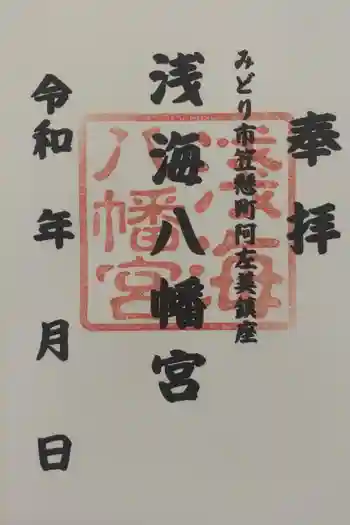 奉拝
みどり市笠懸町阿左美鎮座
浅海八幡宮
令和 年 月 日
浅海
八幡宮